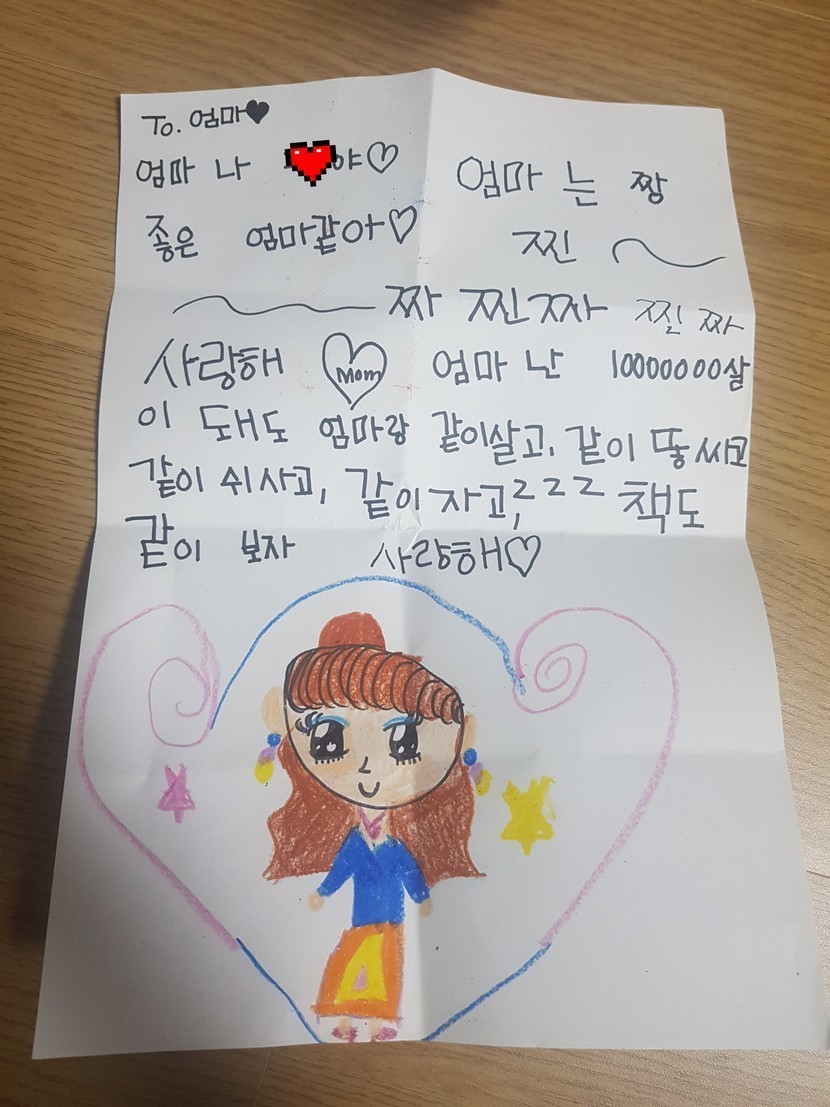 To. 엄마♥
엄마 나 야♡ 엄마 는 짱
좋은 엄마같아♡ 찐 ~
~ 짜 찐짜 찐짜
사랑해 Mom 엄마 난 10000000살
이 돼도 엄마랑 같이살고, 같이 똥 싸고
같이 쉬 사고, 같이 자고, zzz 책도
같이 보자 사랑해♡